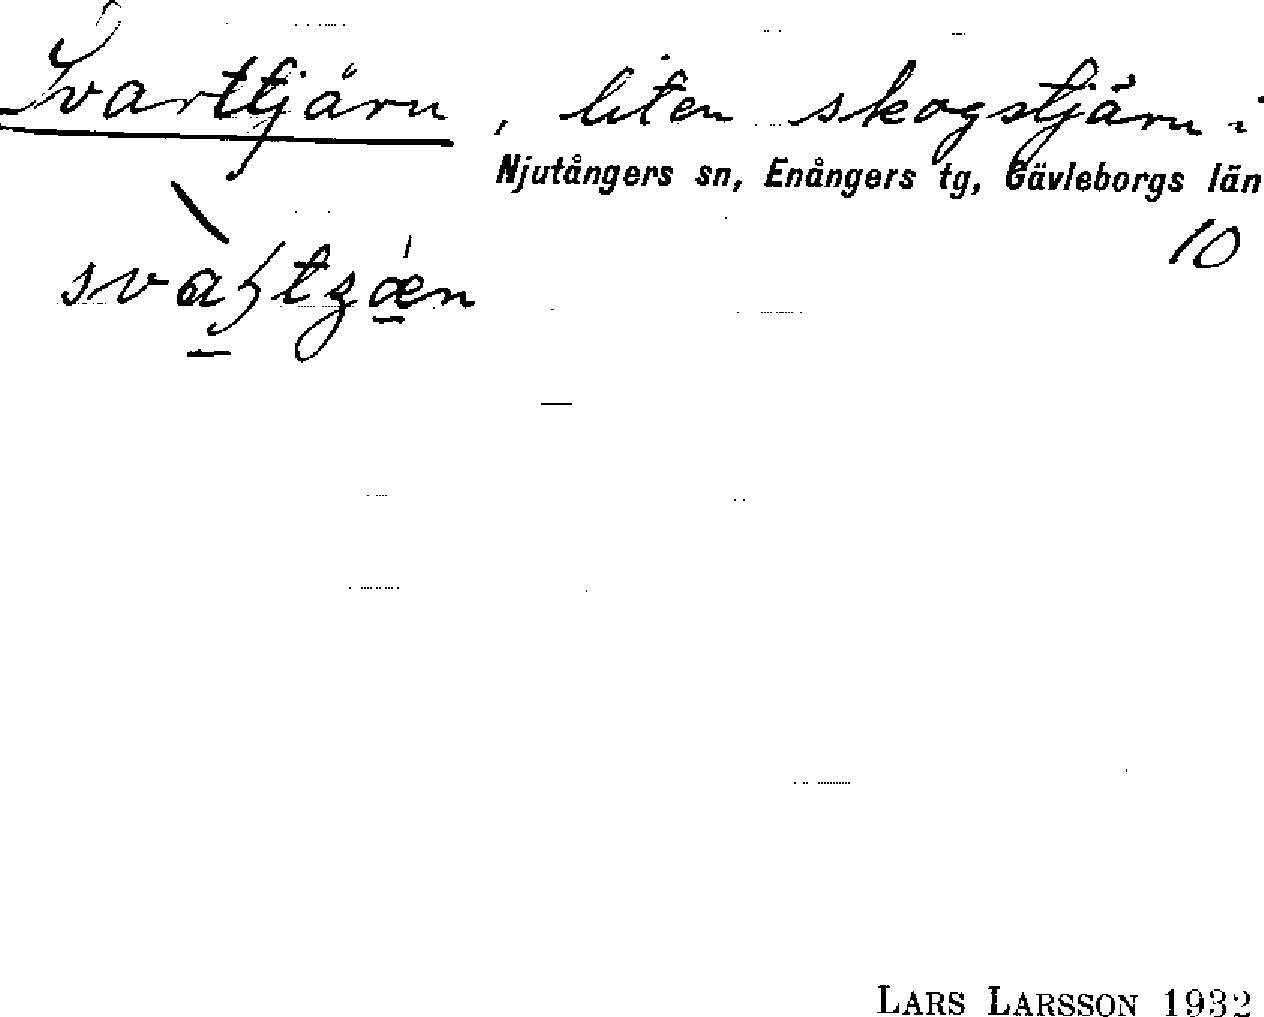 Svarttjärn, liten skogstjärn i
Njutångers sn, Enångers tg, Gävleborgs län
10
LARS LARSSON 1932